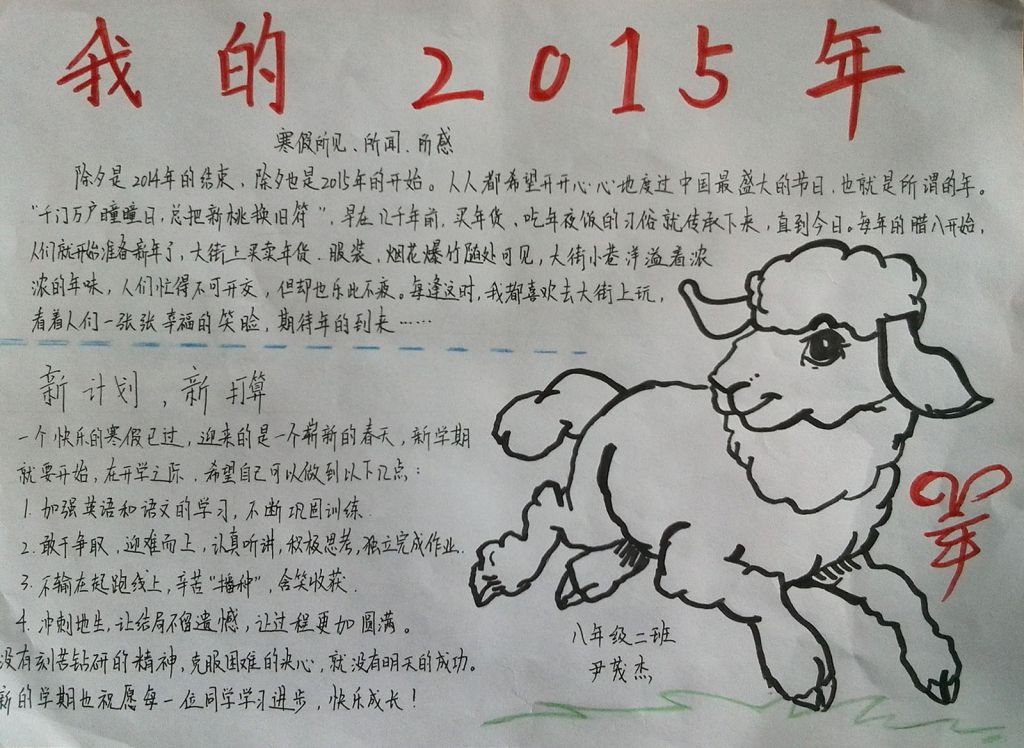 我的2015年
寒假所见、所闻、所感
除夕是2014年的结束，除夕也是2015年的开始。人人都希望开开心心地度过中国最盛大的节日，也就是所谓的年。
“千门万户曈曈日，总把新桃换旧符”，早在几千年前，买年货、吃年夜饭的习俗就传承下来，直到今日。每年的腊八开始，
人们就开始准备新年了，大街上买卖年货、服装、烟花爆竹随处可见，大街小巷洋溢着浓
浓的年味，人们忙得不可开交，但却也乐此不疲。每逢这时，我都喜欢去大街上玩，
看着人们一张张幸福的笑脸，期待年的到来……
新计划，新打算
一个快乐的寒假已过，迎来的是一个崭新的春天，新学期
就要开始，在开学之际，希望自己可以做到以下几点：
1. 加强英语和语文的学习，不断巩固训练.
2. 敢于争取，迎难而上，认真听讲，积极思考，独立完成作业.
3. 不输在起跑线上，辛苦“播种”，含笑收获.
4. 冲刺地生，让结局不留遗憾，让过程更加圆满。
没有刻苦钻研的精神，克服困难的决心，就没有明天的成功。
新的学期也祝愿每一位同学学习进步，快乐成长！
羊
八年级二班
尹茂杰